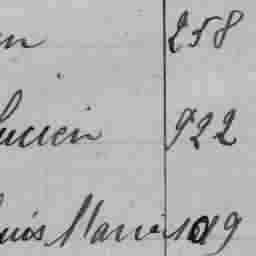 en 258
Lucien 922
uis Marie 109